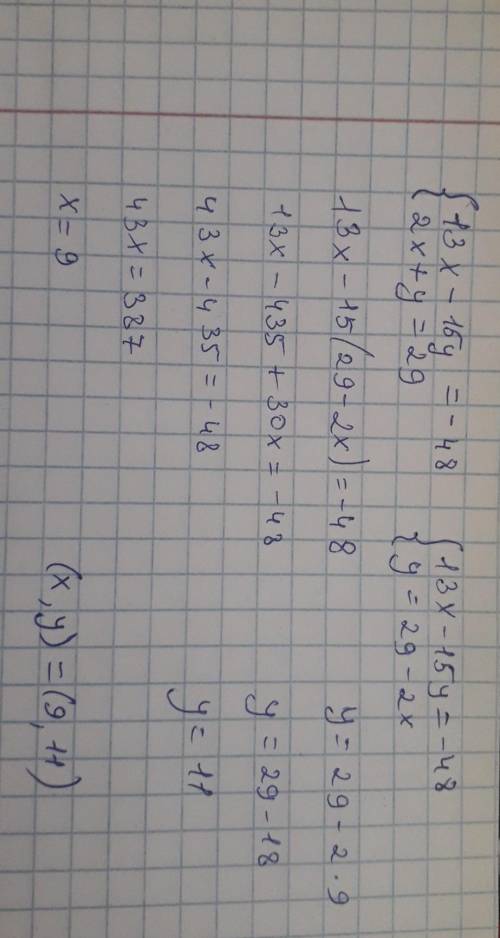 { 13x - 15y = -48
2x + y = 29
{ 13x - 15y = -48
y = 29 - 2x
13x - 15(29 - 2x) = -48
13x - 435 + 30x = -48
43x - 435 = -48
43x = 387
x = 9
y = 29 - 2 · 9
y = 29 - 18
y = 11
(x, y) = (9, 11)